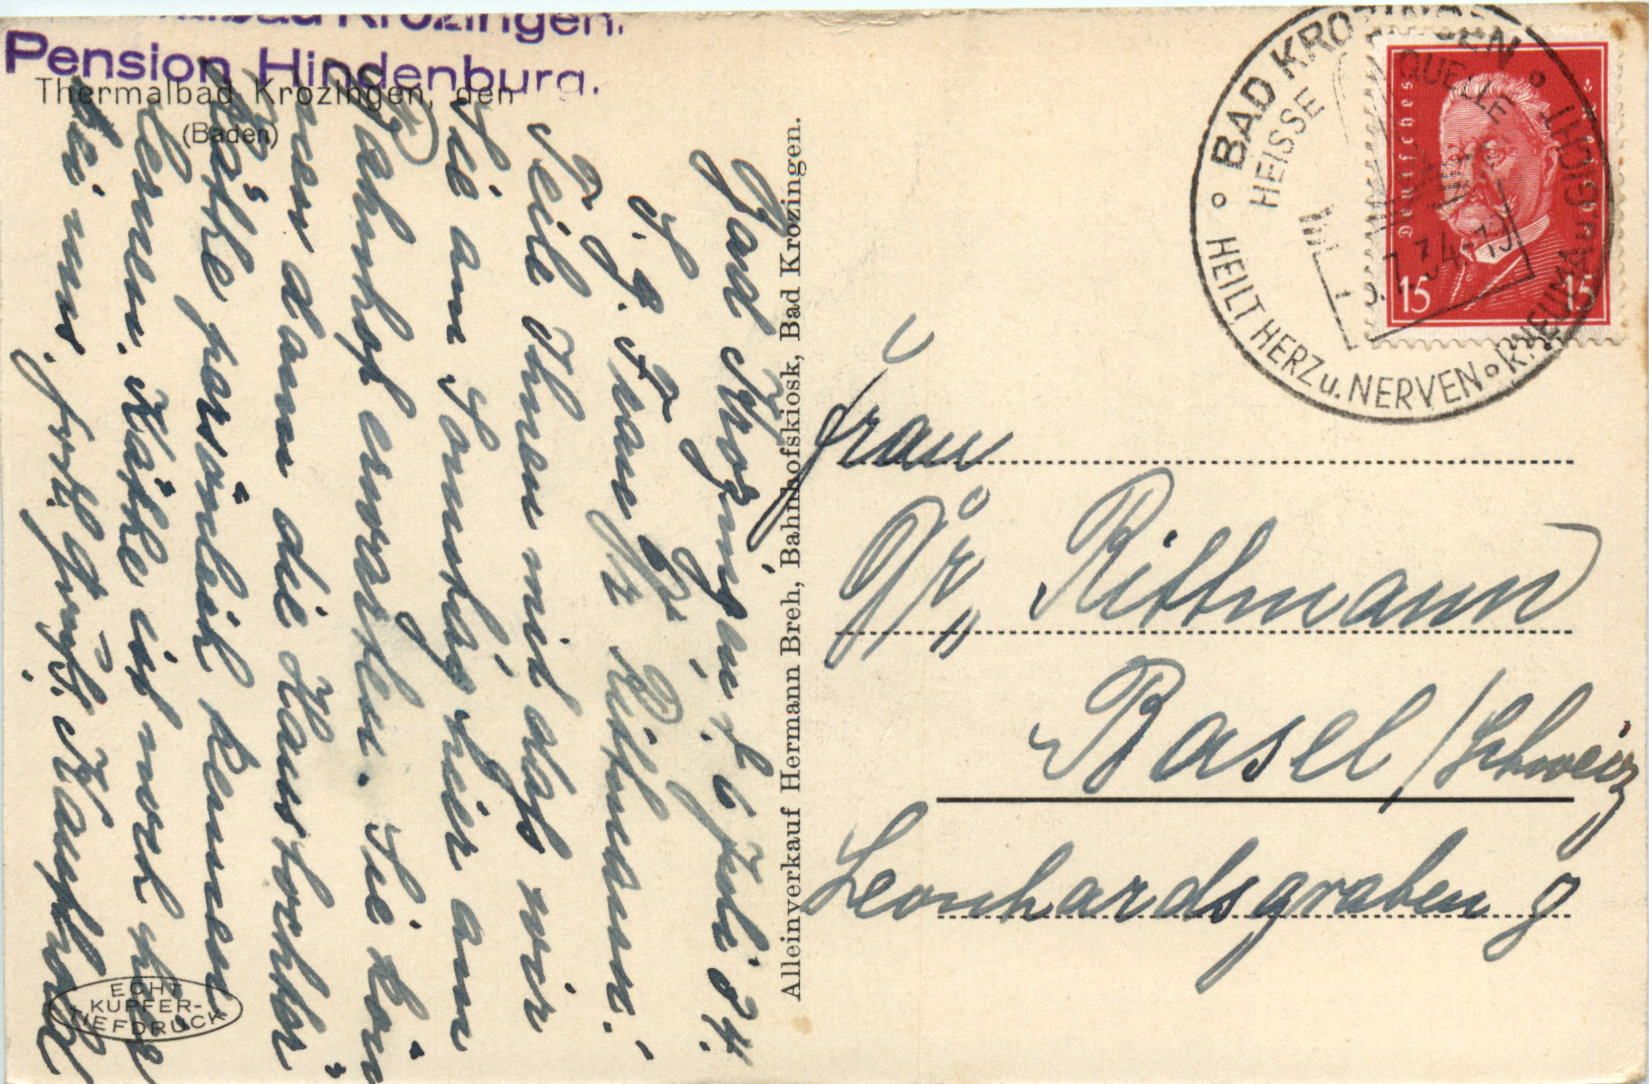 Krozingen.
Pension Hindenburg.
Thermalbad Krozingen, den
(Baden)
Bad Krozingen, 6 Juli 34.
S. g. Frau Dr. Rittmann.
Teile Ihnen mit dass wir
Sie am Sonntag hier am
Bahnhof erwarten. Sie kön
nen dann die Haustochter
Käthe persönlich kennen
lernen. Käthe ist noch hier
bei uns.
Alleinverkauf Hermann Breh, Bahnhofskiosk, Bad Krozingen.
ECHT
KUPFER-
TIEFDRUCK
BAD KROZINGEN
HEISSE QUELLE
HEILT HERZ u. NERVEN RHEUMA GICHT
Deutsches
15 15
Frau
Dr. Rittmann
Basel / Schweiz
Leonhardsgraben 9